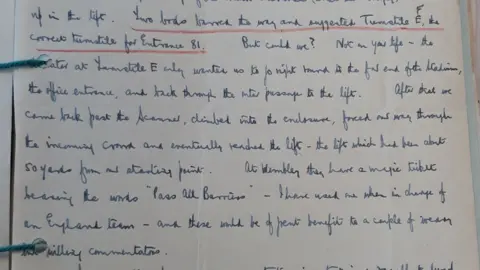 up in the lift. Two bods barred the way and suggested Turnstile F, the
correct turnstile for Entrance 81. But could we? Not on your life - the
at Turnstile E only wanted us to go right round to the far end of the Stadium,
the office entrance, and back through the inter passage to the lift. After that we
came back past the Scanner, climbed into the enclosure, forced our way through
the incoming crowd and eventually reached the lift - the lift which had been about
50 yards from our starting point. At Wembley they have a magic ticket
bearing the words "Pass All Barriers" - I have used one when in charge of
an England team - and these would be of great benefit to a couple of weary
but willing commentators.